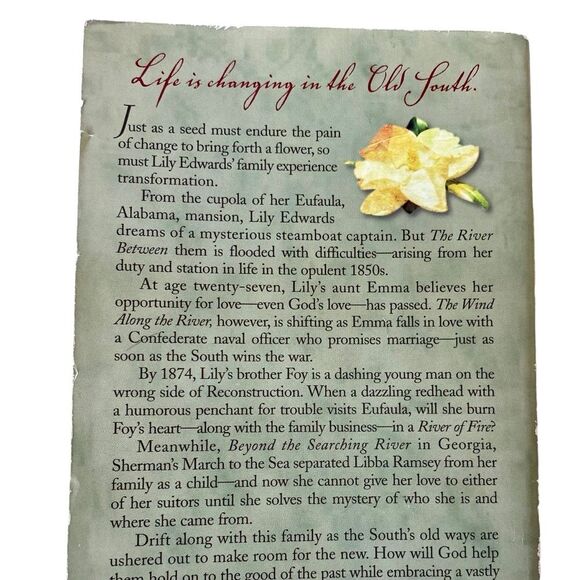 Life is changing in the Old South.
Just as a seed must endure the pain
of change to bring forth a flower, so
must Lily Edwards' family experience
transformation.
From the cupola of her Eufaula,
Alabama, mansion, Lily Edwards
dreams of a mysterious steamboat captain. But The River
Between them is flooded with difficulties—arising from her
duty and station in life in the opulent 1850s.
At age twenty-seven, Lily's aunt Emma believes her
opportunity for love—even God's love—has passed. The Wind
Along the River, however, is shifting as Emma falls in love with
a Confederate naval officer who promises marriage—just as
soon as the South wins the war.
By 1874, Lily's brother Foy is a dashing young man on the
wrong side of Reconstruction. When a dazzling redhead with
a humorous penchant for trouble visits Eufaula, will she burn
Foy's heart—along with the family business—in a River of Fire?
Meanwhile, Beyond the Searching River in Georgia,
Sherman's March to the Sea separated Libba Ramsey from her
family as a child—and now she cannot give her love to either
of her suitors until she solves the mystery of who she is and
where she came from.
Drift along with this family as the South's old ways are
ushered out to make room for the new. How will God help
them hold on to the good of the past while embracing a vastly